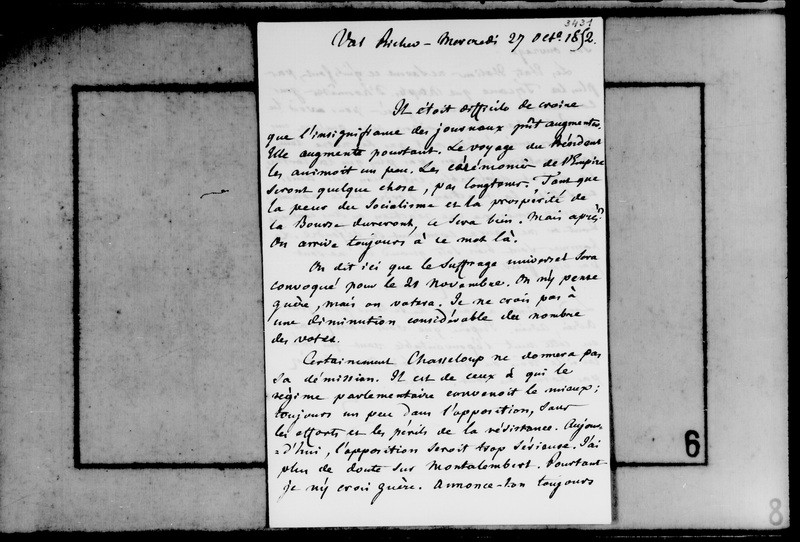 3431
Val Richer – Mercredi 27 Oct. 1852.
Il étoit difficile de croire
que l'insignifiance des journaux pût augmenter.
Elle augmente pourtant. Le voyage du Président
les animoit un peu. Les cérémonies de l'Empire
seront quelque chose, pas longtems. Tant que
la peur du Socialisme et la prospérité de
la Bourse dureront, ce sera bien. Mais après?
On arrive toujours à ce mot là.
On dit ici que le Suffrage universel sera
convoqué pour le 21 Novembre. On n'y pense
guère, mais on votera. Je ne crois pas à
une diminution considérable du nombre
des votes.
Certainement Chasseloup ne donnera pas
sa démission. Il est de ceux à qui le
régime parlementaire convenoit le mieux;
toujours un peu dans l'opposition, sans
les efforts et les périls de la résistance. Aujour-
=d'hui, l'opposition seroit trop sérieuse. J'ai
plus de doute sur Montalembert. Pourtant
je n'y crois guère. Annonce-t-on toujours
6
8